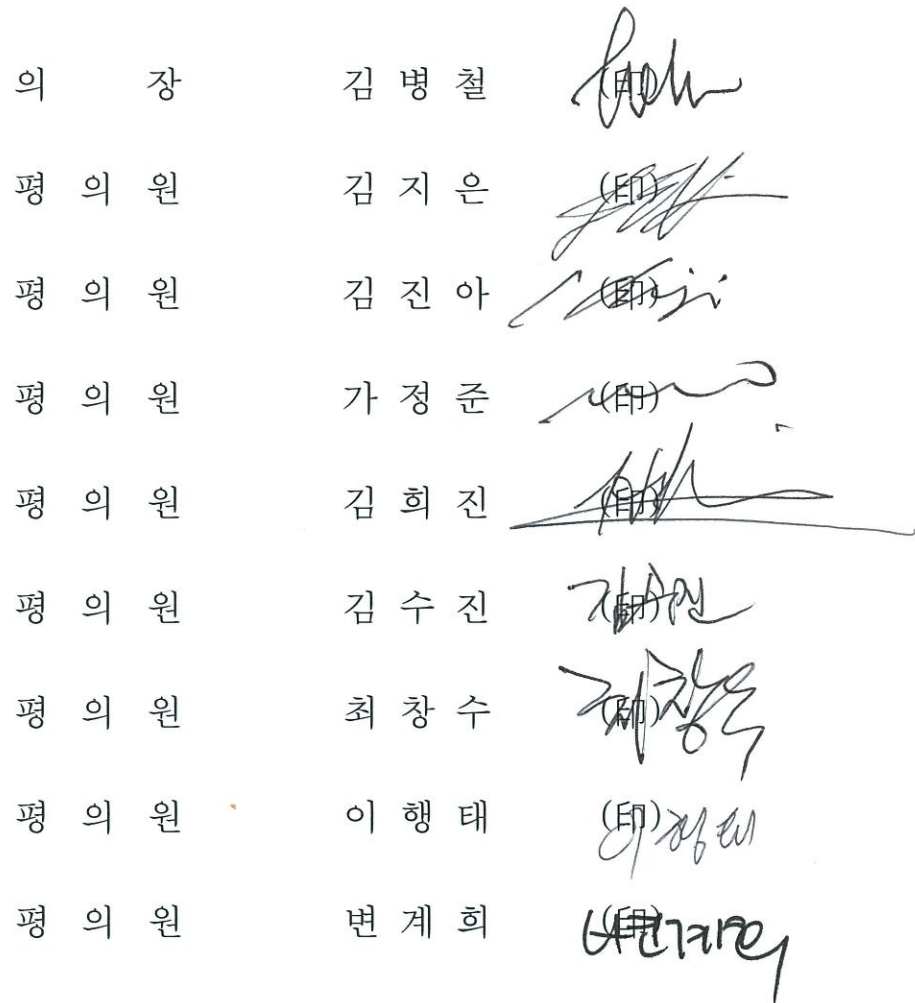 의 장 김 병 철 (印)
평 의 원 김 지 은 (印)
평 의 원 김 진 아 (印)
평 의 원 가 정 준 (印)
평 의 원 김 희 진 (印)
평 의 원 김 수 진 (印) 김수진
평 의 원 최 창 수 (印) 최창수
평 의 원 이 행 태 (印) 이행태
평 의 원 변 계 희 (印) 변계희